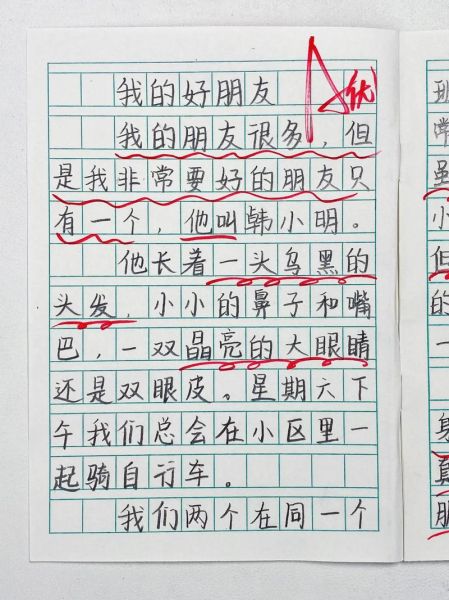 我的好朋友
A 优
我的朋友很多，但
是我非常要好的朋友只
有一个，他叫韩小明。
他长着一头乌黑的
头发，小小的鼻子和嘴
巴，一双晶亮的大眼睛
还是双眼皮。星期六下
午我们总会在小区里一
起骑自行车。
我们两个在同一个
班
常
虽
小
但
的
一
身
真
朋